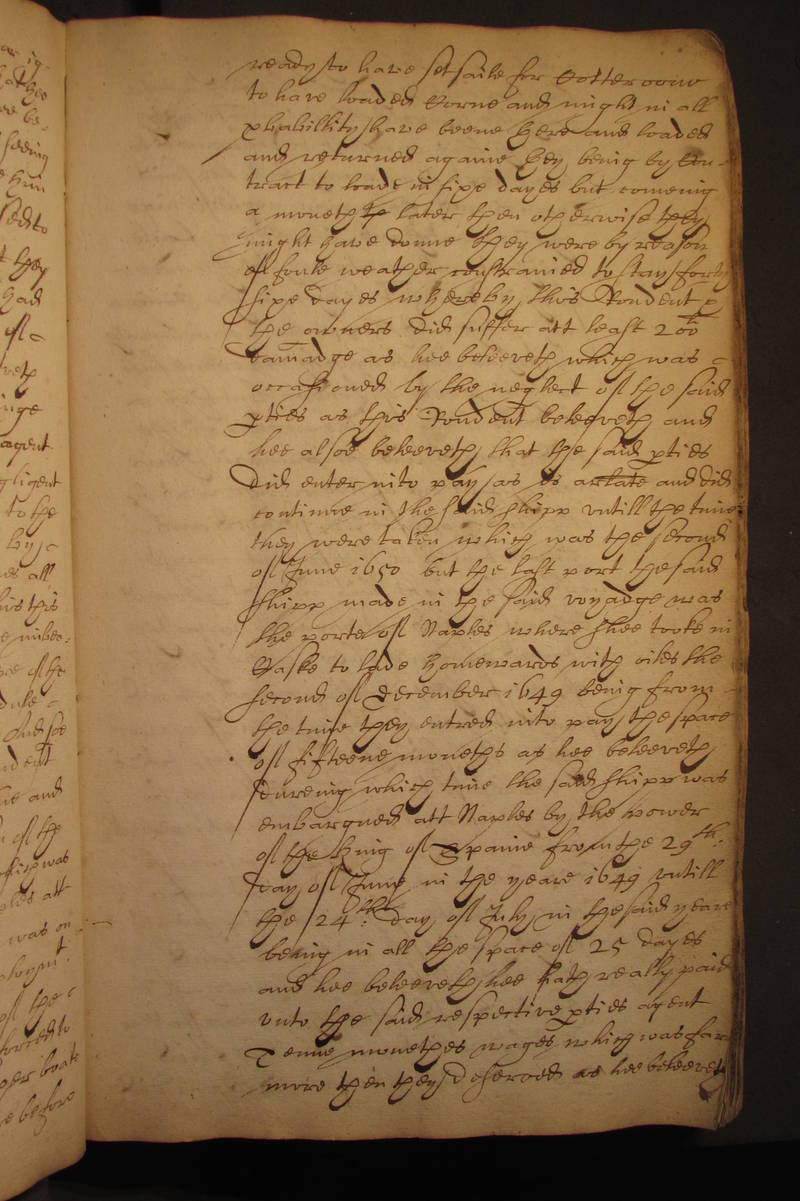 ready to have set saile for
to have loaded Corne and might in all
pbabillity have beene there and loaded
and returned againe they being by Con-
tract to loade in sixe dayes but comeing
a moneth later then otherwise they
might have donne they were by reason
of foule weather constrained to stay forty
sixe dayes whereby this Rondent p
the owners did suffer att least 200li
damadge as hee beleeveth which was
occasioned by the neglect of the said
pties as this Rondent beleeveth and
hee alsoe beleeveth that the said pties
did enter into pay as is arlate and did
continue in the said shipp untill the time
they were taken which was the second
of June 1650 but the last port the said
shipp made in the said voyadge was
the porte of Naples where shee tooke in
Caske to lade homewards with oiles the
second of December 1649 being from
the time they entred into pay the space
of fifteene moneths as hee beleeveth
dureing which time the said shipp was
embargued att Naples by the power
of the King of Spaine from the 29th:
day of June in the yeare 1649 untill
the 24th: day of July in the said yeare
being in all the space of 25 dayes
and hee beleeveth hee hath really paid
unto the said respective pties agent
Tenne monethes wages which was farr
more then they deserved as hee beleeveth